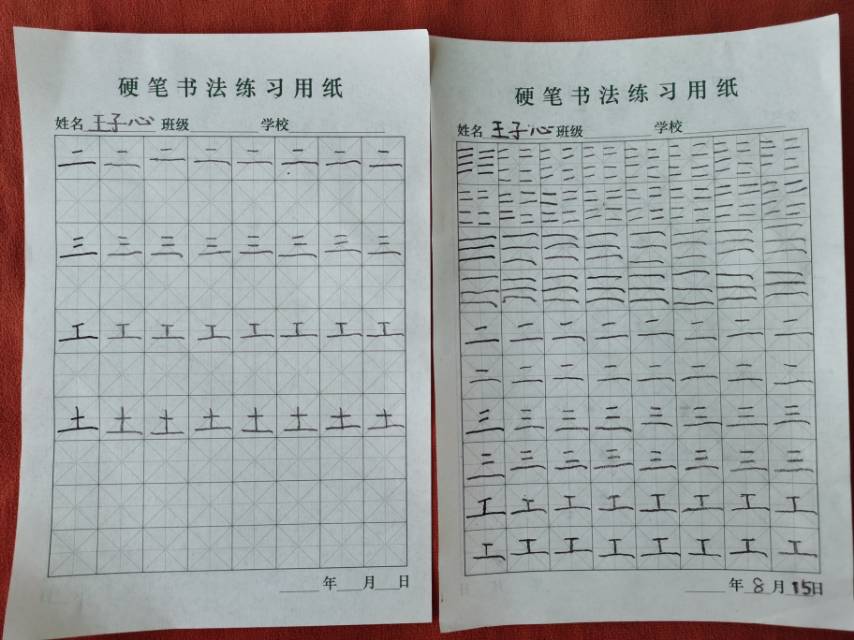 硬笔书法练习用纸
姓名 王子心 班级 学校
二 二 二 二 二 二 二 二
三 三 三 三 三 三 三 三
工 工 工 工 工 工 工 工
土 土 土 土 土 土 土 土
年 月 日
硬笔书法练习用纸
姓名 王子心 班级 学校
二 二 二 二 二 二 二 二
二 二 二 二 二 二 二 二
三 三 三 三 三 三 三 三
三 三 三 三 三 三 三 三
工 工 工 工 工 工 工 工
工 工 工 工 工 工 工 工
年 8 月 15 日